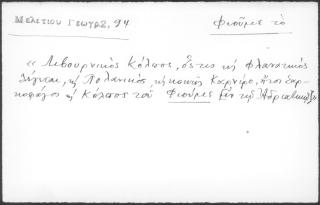 Μελετίου Γεωγρ, 94
Φιούμες τὸ
« Λιβουρνικὸς Κόλπος, ὅστις κὴ Φλανατικὸς
λέγεται, κὴ Πολανικὸς, κὴ κοινῶς Καρνέρο, ἤτοι Σαρ-
κοφάγος κὴ Κόλπος τοῦ Φιούμες